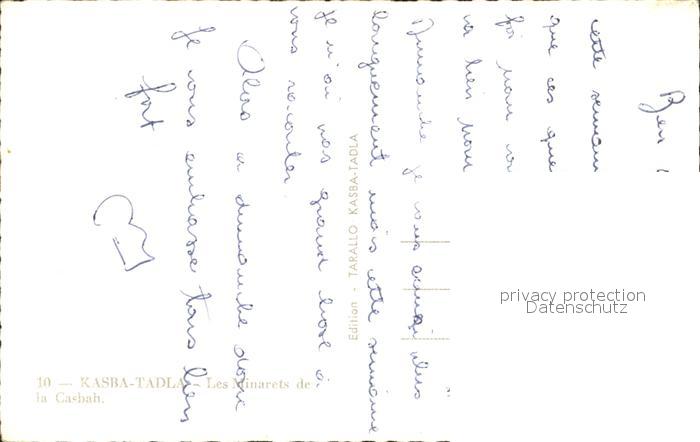 Ben !
cette semain
que ces que
foi pour va
va bien pour
Dimanche je vous écrirai plus
longuement mais cette semaine
je n'ai pas grand chose à
vous raconter.
Alors a dimanche donc
je vous embrasse tous bien
fort
Edition - TARALLO KASBA-TADLA
10 — KASBA-TADLA - Les Minarets de
la Casbah.
privacy protection
Datenschutz